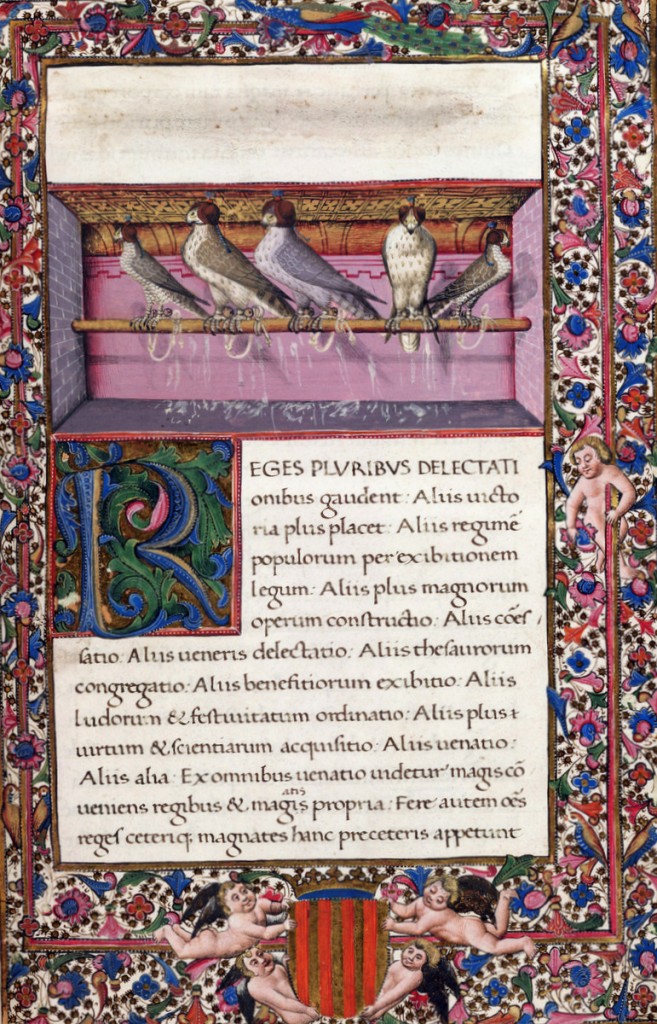 REGES PLVRIBVS DELECTATI
onibus gaudent: Aliis uicto
ria plus placet: Aliis regimē
populorum per exibitionem
legum: Aliis plus magnorum
operum constructio: Aliis cōes
satio: Aliis ueneris delectatio: Aliis thesaurorum
congregatio: Aliis benefitiorum exibitio: Aliis
ludorum & festiuitatum ordinatio: Aliis plus
uirtum & scientiarum acquisitio: Aliis uenatio:
Aliis alia: Ex omnibus uenatio uidetur magis cō
ueniens regibus & magis propria: Fere autem oēs
reges ceteriq; magnates hanc preceteris appetunt